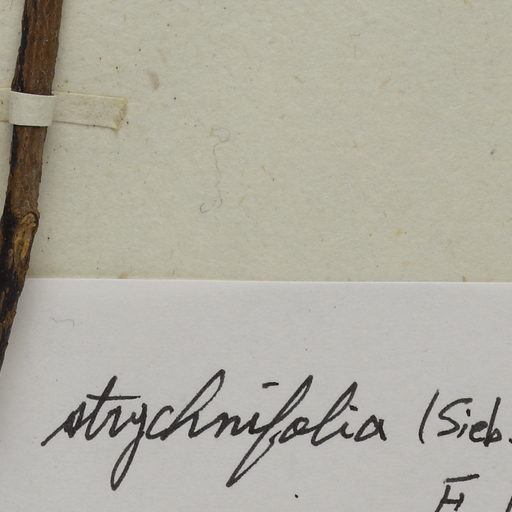 strychnifolia (Sieb.
F.